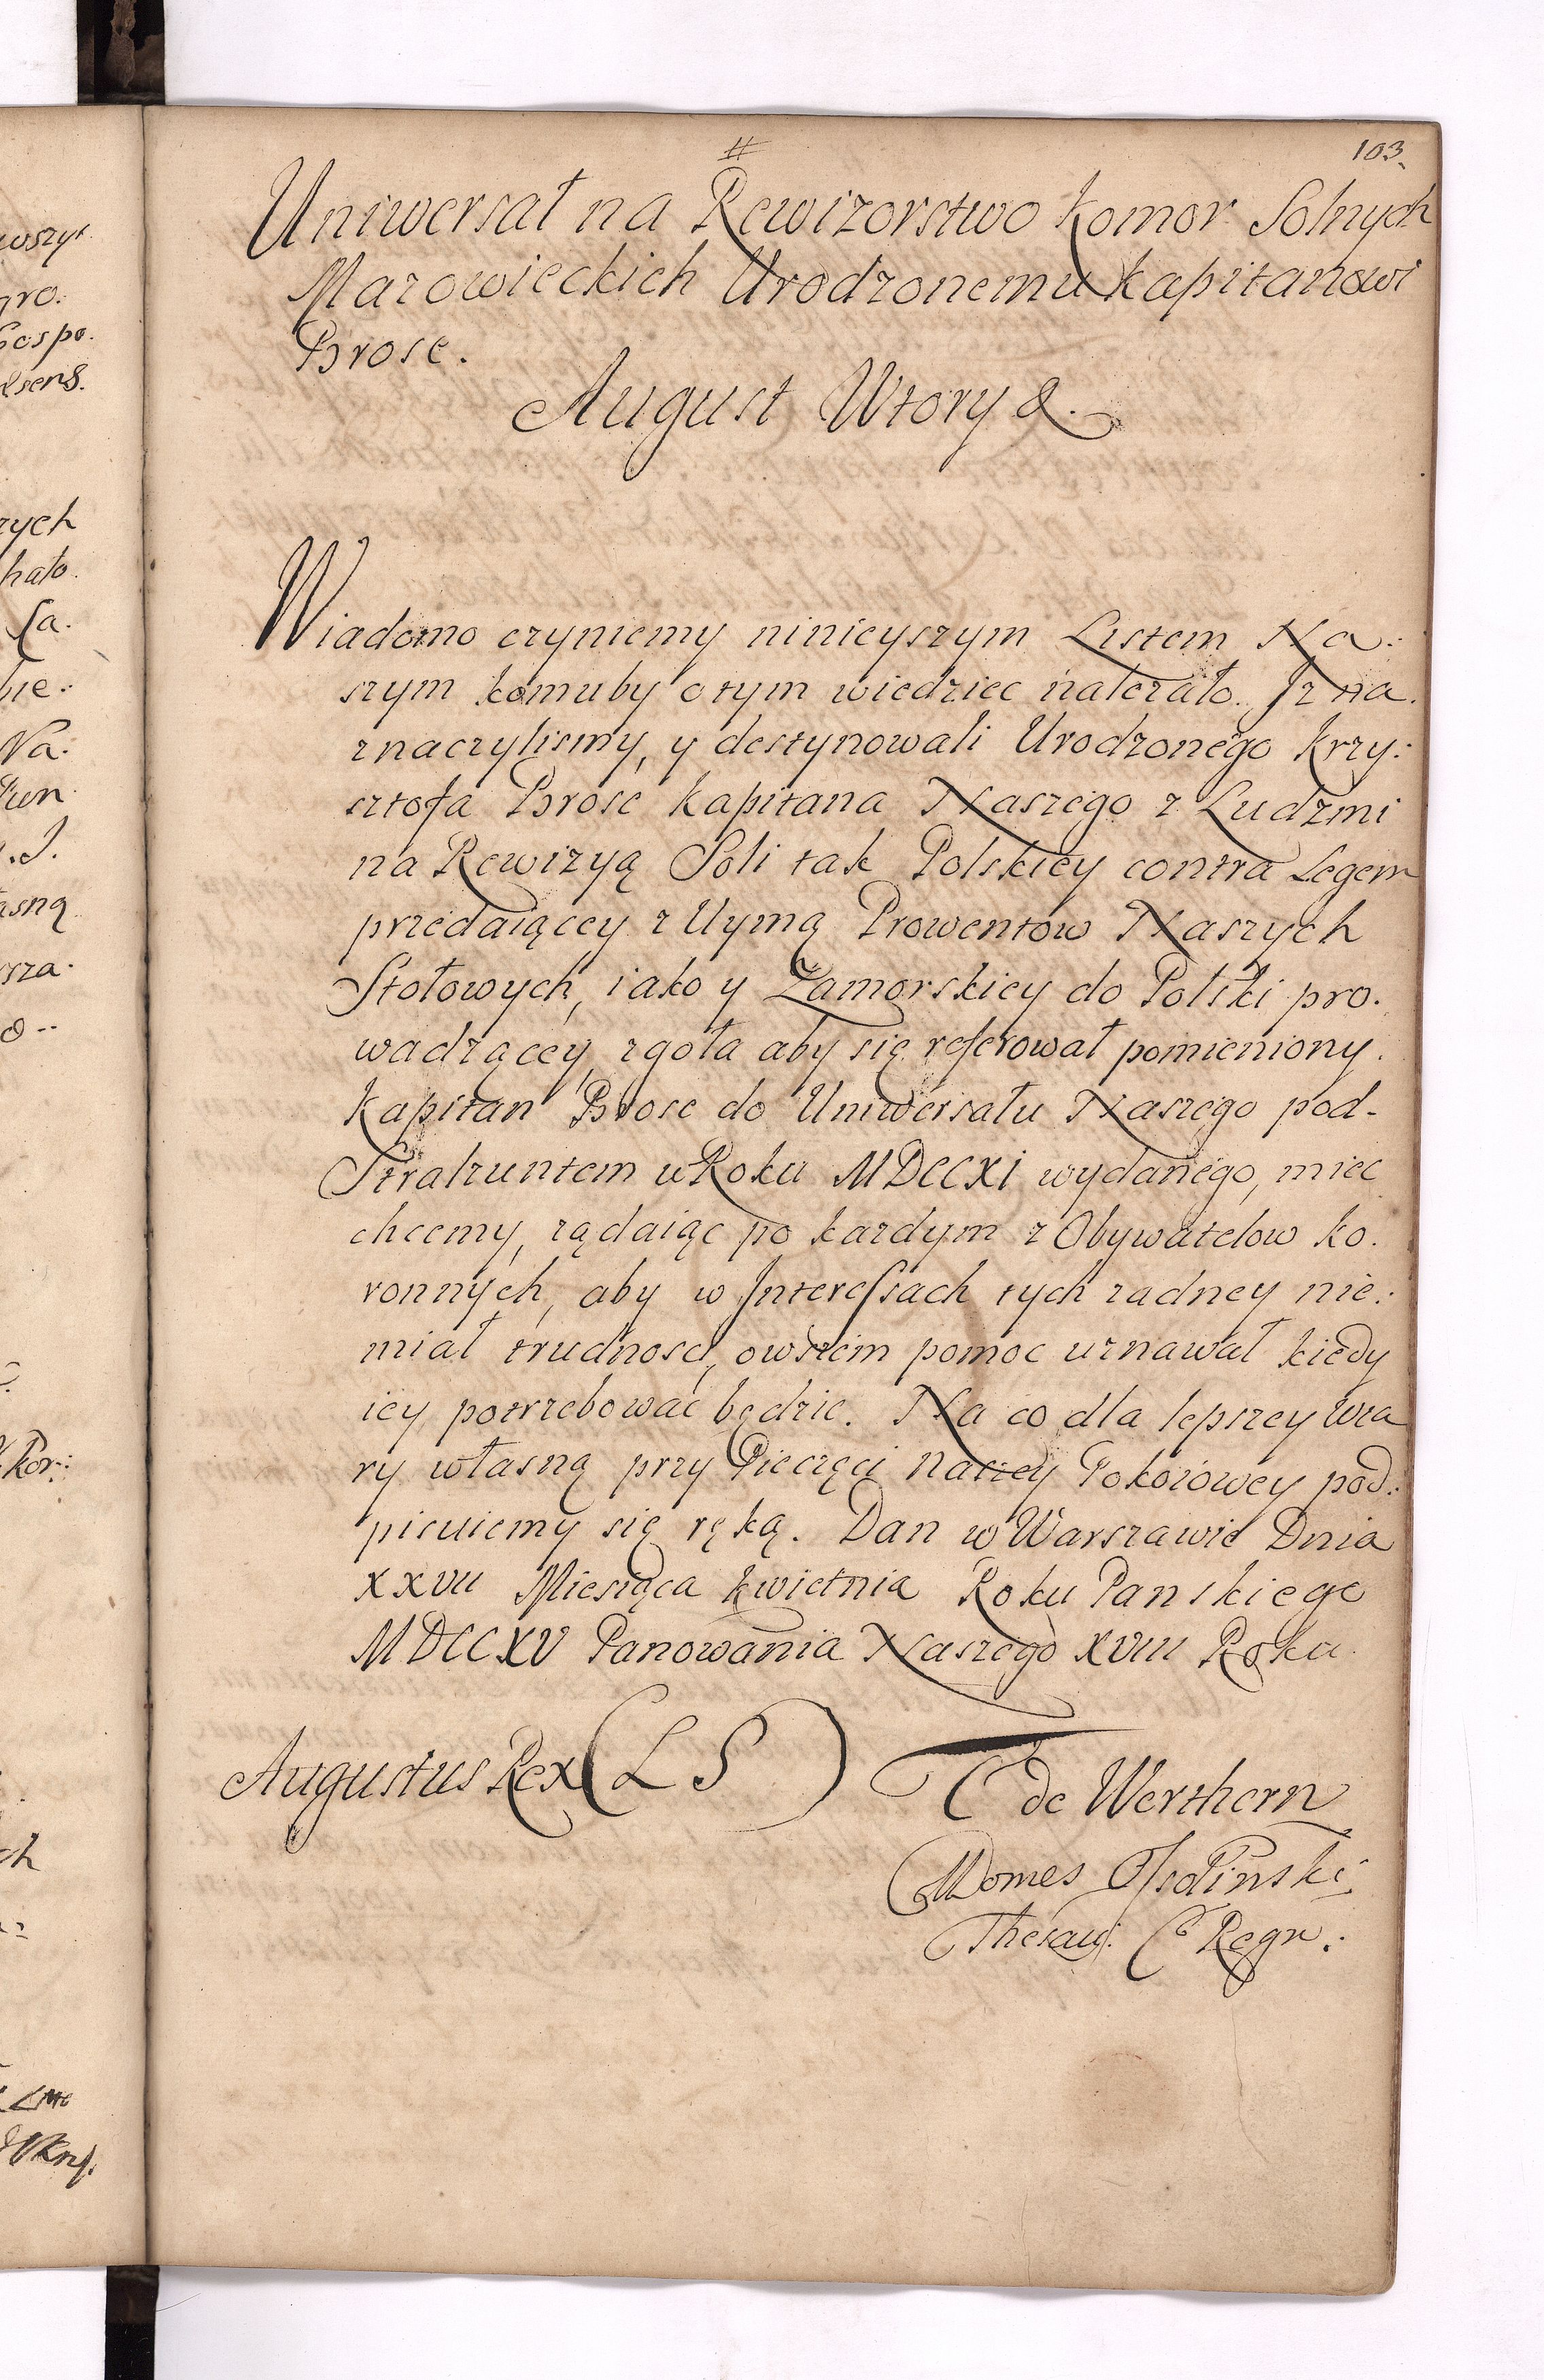 #
103.
Uniwersał na Rewizorstwo Komor Solnych
Mazowieckich Urodzonemu Kapitanowi
Brose.
August Wtory &.
Wiadomo czyniemy ninieyszym Listem Na:
szym komuby otym wiedziec nalezało. Iz na.
znaczylismy, y destynowali Urodzonego Krzy:
sztofa Brose Kapitana Naszego z Ludzmi
na Rewizyą Soli tak Polskiey contra Legem
przedaiącey z Uymą Prowentow Naszych
Stołowych, iako y Zamorskiey do Polski pro.
wadzącey, zgoła aby się referował pomieniony.
Kapitan Brose do Uniwersału Naszego pod-
Stralzuntem w Roku MDCCXI wydanego, miec
chcemy, ządaiąc po kazdym z Obywatelow Ko.
ronnych, aby w Interessach tych zadney nie:
miał trudnosci, owszem pomoc uznawał kiedy
iey potrzebować będzie. Na co dla lepszey Wia
ry własną przy Pieczęci naszey Pokoiowey pod:
pisuiemy się ręką. Dan w Warszawie Dnia
XXVII Miesiąca Kwietnia Roku Panskiego
MDCCXV Panowania Naszego XVIII Roku
Augustus Rex (L S) de Werthern
Thesau: C Regn:
wszyt
gro.
Gospo.
rych
hato.
Ca.
bie:
Na:
asną
rsza.
Kor: